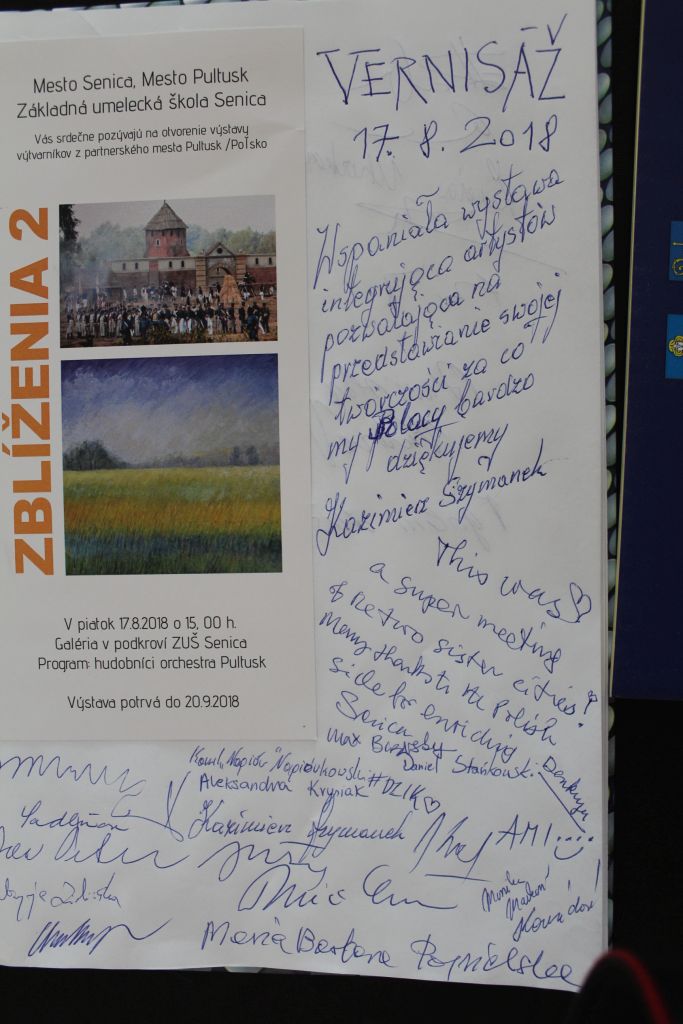 Mesto Senica, Mesto Pultusk
Základná umelecká škola Senica
Vás srdečne pozývajú na otvorenie výstavy
výtvarníkov z partnerského mesta Pultusk /Poľsko
ZBLÍŽENIA 2
V piatok 17.8.2018 o 15, 00 h.
Galéria v podkroví ZUŠ Senica
Program: hudobníci orchestra Pultusk
Výstava potrvá do 20.9.2018
VERNISÁŽ
17. 8. 2018
Wspaniała wystawa
integrująca artystów
pozwalająca na
przedstawianie swojej
twórczości za co
my Polacy bardzo
dziękujemy
Kazimierz Szymanek
This was
a super meeting
of the two sister cities!
Many thanks to the Polish
side for enriching
Senica
Max
Daniel Stańkowski
Kamil "Napiór" Napiórkowski #DZIK
Aleksandra Kryniak
Kazimierz Szymanek
AMI
Monika
Maria Barbara